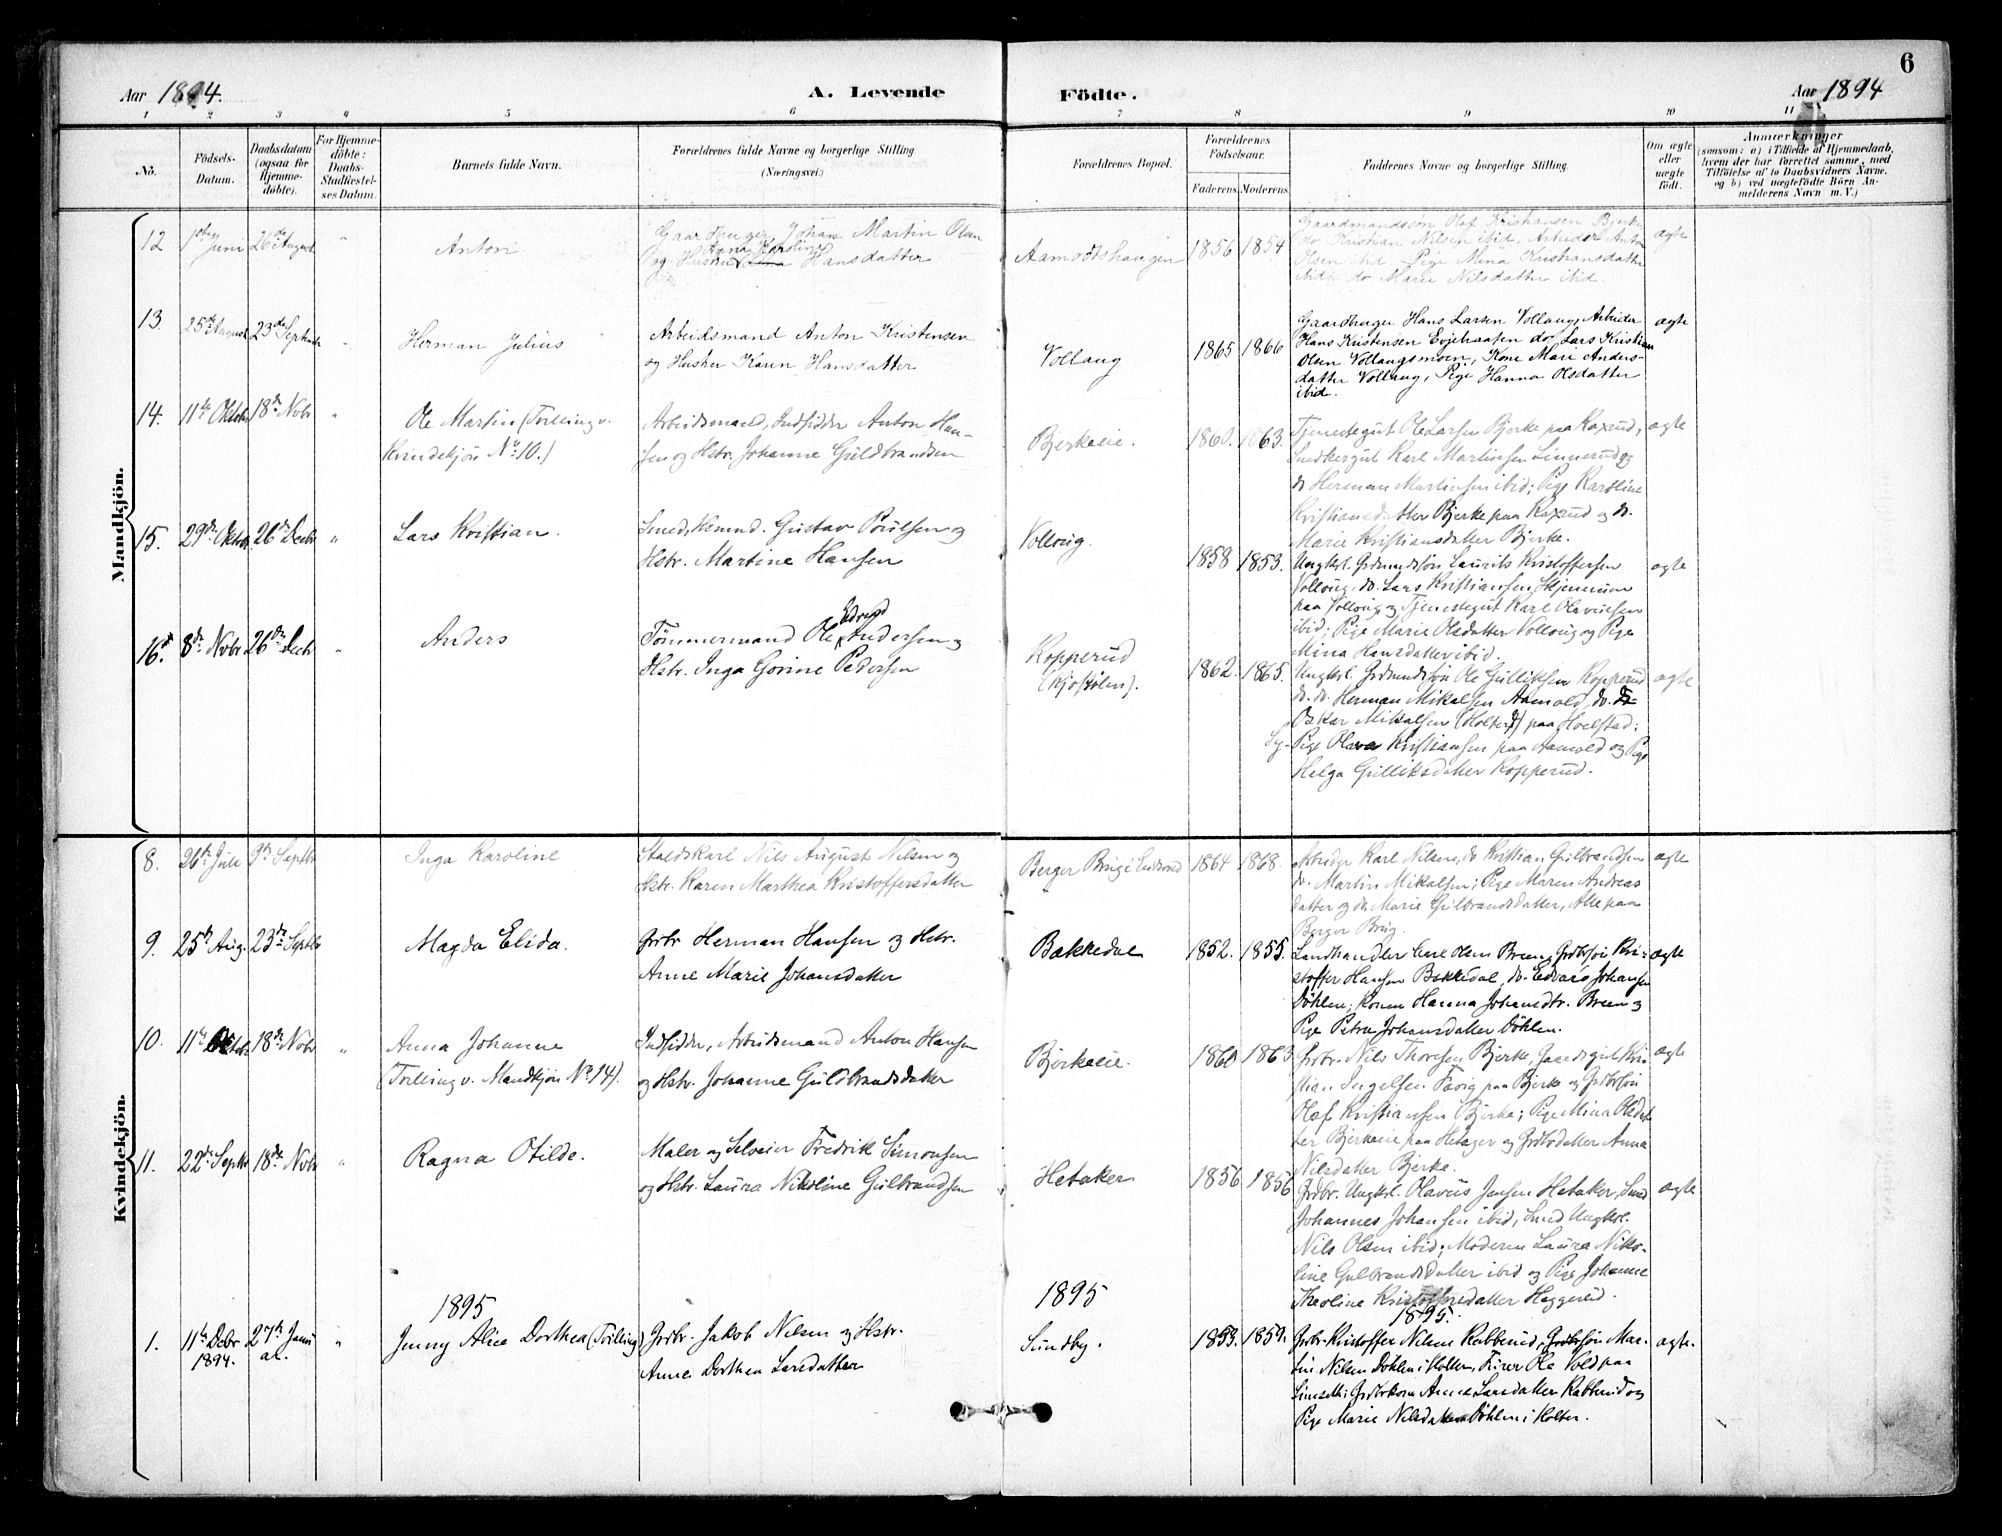 6
Aar 1894.
A. Levende
Födte.
Aar 1894
1 2 3 4 5 6 7 8 9 10 11
No.
Födsels-
Datum.
Daabsdatum
(ogsaa for
Hjemme-
döbte).
For Hjemme-
döbte:
Daabs-
Stadfæstel-
ses Datum.
Barnets fulde Navn.
Forældrenes fulde Navne og borgerlige Stilling.
(Næringsvei.)
Forældrenes Bopæl.
Forældrenes
Födselsaar.
Faderens. Moderens.
Faddernes Navne og borgerlige Stilling.
Om ægte
eller
uægte
födt.
Anmærkninger
(saasom: a) i Tilfælde af Hjemmedaab,
hvem der har forrettet samme, med
Tilföielse af to Daabsvidners Navne.
og b) ved uægtefödte Börn An-
melderens Navn m. V.)
Mandkjön.
12 1ste Juni 26de August " Anton
Gaardbruger Johan Martin Olsen
Anna Karoline
og Hustru Lina Hansdatter
Aamodtshaugen 1856 1854
Gaardmandssøn Olaf Kristiansen Bjerke
do Kristian Nilsen ibid, Arbeider Anton
Olsen ibid. Pige Mina Kristiansdatter
ibid, do Marie Nilsdatter ibid.
ægte
13 25de August 23de Septemb " Herman Julius
Arbeidsmand Anton Kristensen
og Hustru Karen Hansdatter
Vollaug 1865 1866
Gaardbruger Hans Larsen Vollaug, Arbeider
Hans Kristensen Evjehaasen do, Lars Kristian
Olsen Vollaugsmoen, Kone Mari Anders-
datter Vollaug, Pige Hanna Olsdatter
ibid.
ægte
14. 11te Oktober 18de Novbr " Ole Martin (Tvilling v.
Kvindekjön No 10.)
Arbeidsmand, Indsidder Anton Han-
sen og Hstr. Johanne Guldbrandsen
Bjerkeeie. 1860. 1863.
Tjenestegut Ole Larsen Bjerke paa Raxrud,
Snedkergut Karl Martinsen Linnerud og
do Herman Martinsen ibid; Pige Karoline
Kristiansdatter Bjerke paa Raxrud og do.
Marie Kristiansdatter Bjerke.
ægte
15. 29de Oktbr. 26de Decbr " Lars Kristian.
Smed, Gustav Poulsen og
Hstr. Martine Hansen
Vollaug. 1858 1853.
Ungkrl. Grdmandssön Laurits Kristoffersen
Vollaug, do. Lars Kristiansen
paa Vollaug og Tjenestegut Karl Olavesen
ibid; Pige Marie Olsdatter Vollaug og Pige
Mina Hansdatter ibid.
ægte
16. 8de Novbr 26de Decbr " Anders
Edvard
Tömmermand Ole Andersen og
Hstr. Inga Gorine Pedersen
Kopperud
(Kjostølen). 1862. 1865.
Ungkrl. Grdmandssön Ole Gulliksen Kopperud
do. do. Herman Mikalsen Aamold, do. do
Oskar Mikalsen (Holter) paa Hvelstad:
Sy-
Pige Olava Kristiansen paa Aamold og Pige
Helga Gulliksdatter Kopperud.
ægte
Kvindekjön.
8. 26de Juli 9de Septbr Inga Karoline
Staldskarl Nils August Nilsen og
Hstr. Karen Marthea Kristoffersdatter
Berger Brug i 1864 1868.
Arbeider Karl Nilsen, do Kristian Gulbrandsen
do. Martin Mikalsen; Pige Maren Andreas
datter og do. Marie Gulbrandsdatter, Alle paa
Berger Brug.
ægte
9. 25de Aug. 23de Septbr Magda Elida.
Grbr Herman Hansen og Hstr.
Anne Marie Johansdatter
Bakkedal 1852. 1855.
Landhandler Carl Olsen Breen, Grdbrsön Kri-
stoffer Hansen Bakkedal, do. Edvard Johansen
Döhlen; Konen Hanna Johansdtr. Breen og
Pige Petra Johansdatter Döhlen.
ægte
10. 11te Oktbr. 18de Novbr " Anna Johanne
(Tvilling v. Mandkjön No 14).
Indsidder, Arbeidsmand Anton Hansen
og Hstr. Johanne Guldbrandsdatter
Bjerkeeie. 1860 1863
Grbr. Nils Thoresen Bjerke, Gaardsgut Kri-
stian Ingelsen paa Bjerke og Grdbrsön
Olaf Kristiansen Bjerke; Pige Mina Olsdat-
ter Bjerkeeie paa Hetager og Grdbrdatter Anna
Nilsdatter Bjerke.
ægte
11. 22de Septbr 18de Novbr " Ragna Otilde.
Maler og Selveier Fredrik Simonsen
og Hstr. Laura Nikoline Gulbrandsen
Hetaker 1856 1856
Grdbr. Ungkrl. Olavus Jensen Hetaker, Smed
Johannes Johansen ibid, Smed Ungkrl.
Nils Olsen ibid; Moderen Laura Niko-
line Gulbrandsdatter ibid og Pige Johanne
Theoline Kristoffersdatter Heggerud.
ægte
1895
1895
1895.
1. 11te Decbr
1894. 27de Janu
ar. " Jenny Alice Dorthea (Tvilling)
Grbr. Jakob Nilsen og Hstr.
Anne Dorthea Larsdatter
Sundby. 1853. 1859.
Grbr. Kristoffer Nilsen Rabberud, Grdbrsön Mar-
tin Nilsen Döhlen i Holter, Ole Vold paa
Grdbrkone Anne Larsdatter Rabberud og
Pige Marie Nilsdatter Döhlen i Holter.
ægte.